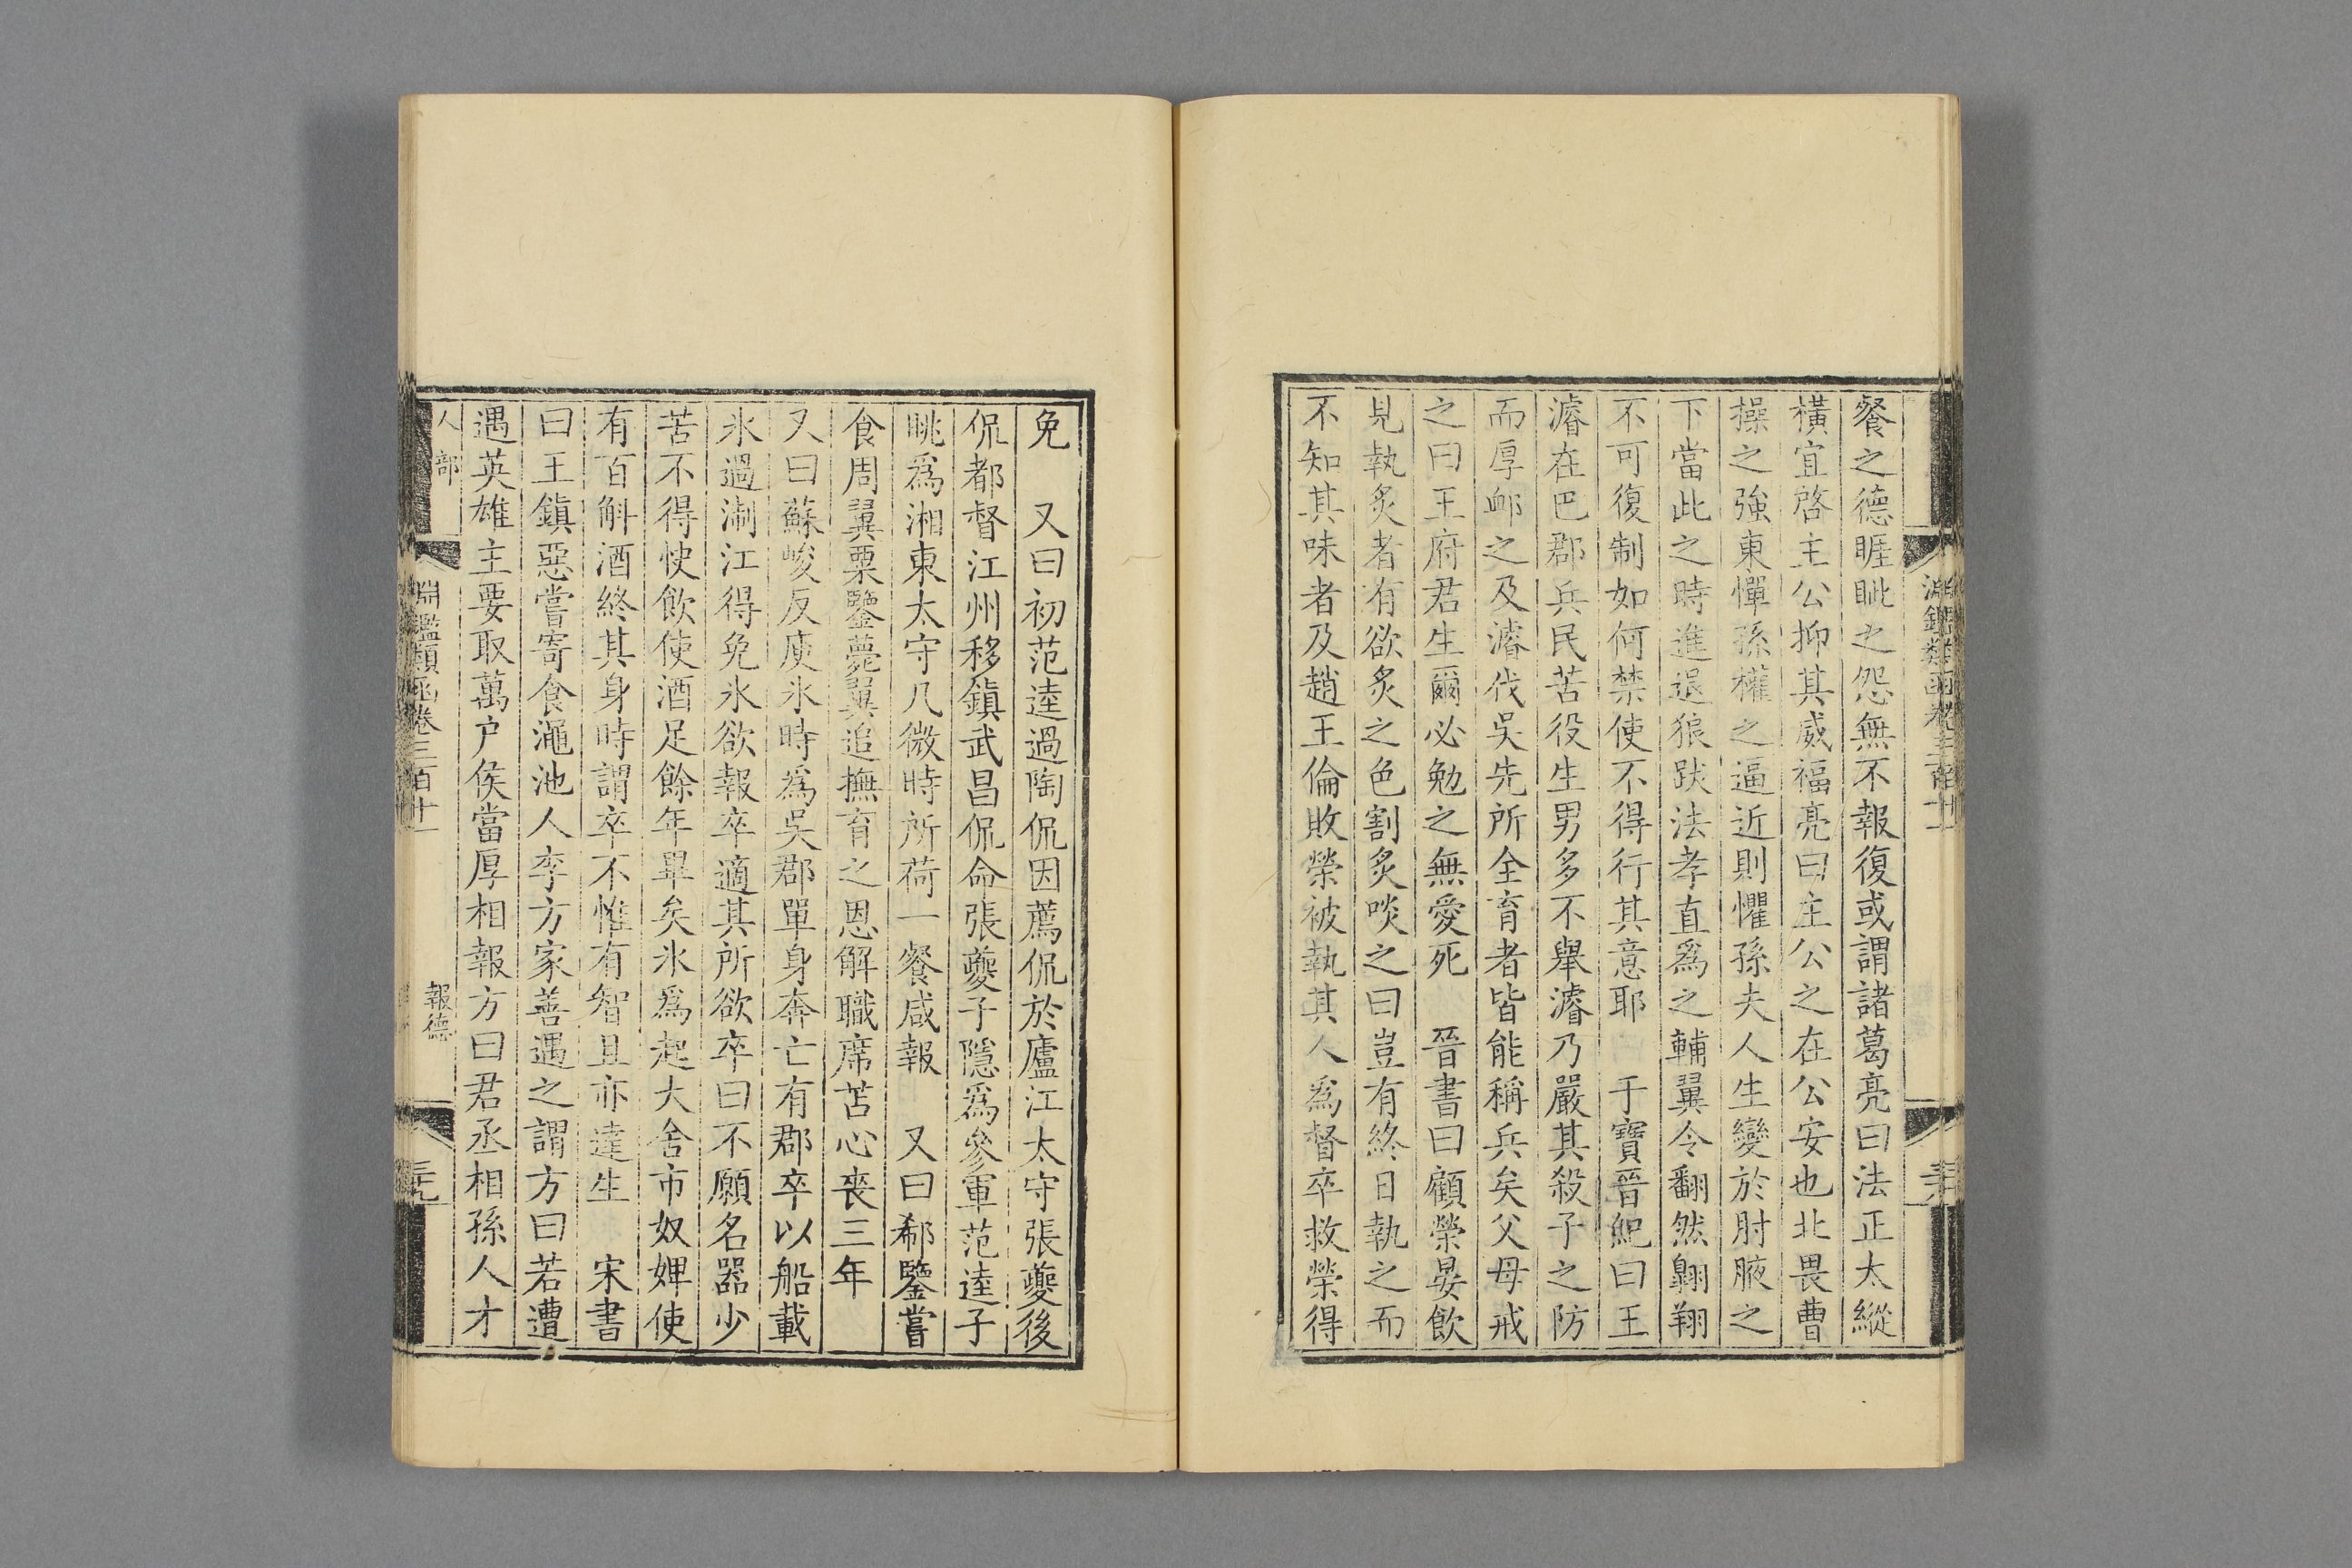 餐之德睚眦之怨無不報復或謂諸葛亮曰法正太縱
橫宜啓主公抑其威福亮曰主公之在公安也北畏曹
操之強東憚孫權之逼近則懼孫夫人生變於肘腋之
下當此之時進退狼跋法孝直爲之輔翼令翻然翺翔
不可復制如何禁使不得行其意耶　于寶晉紀曰王
濬在巴郡兵民苦役生男多不舉濬乃嚴其殺子之防
而厚卹之及濬伐吳先所全育者皆能稱兵矣父母戒
之曰王府君生爾必勉之無愛死　晉書曰顧榮宴飲
見執炙者有欲炙之色割炙啖之曰豈有終日執之而
不知其味者及趙王倫敗榮被執其人爲督卒救榮得
免　又曰初范逵過陶侃因薦侃於廬江太守張夔後
侃都督江州移鎭武昌侃命張夔子隱爲參軍范逵子
眺爲湘東太守凡微時所荷一餐咸報　又曰郗鑒嘗
食周翼粟鑒薨翼追撫育之恩解職席苫心喪三年
又曰蘇峻反庾氷時爲吳郡單身奔亡有郡卒以船載
氷過淛江得免氷欲報卒適其所欲卒曰不願名器少
苦不得快飲使酒足餘年畢矣氷爲起大舍市奴婢使
有百斛酒終其身時謂卒不惟有智且亦達生　宋書
曰王鎭惡嘗寄食澠池人李方家善遇之謂方曰若遭
遇英雄主要取萬户侯當厚相報方曰君丞相孫人才
人部
淵鑑類函卷三百十一
報德
三九